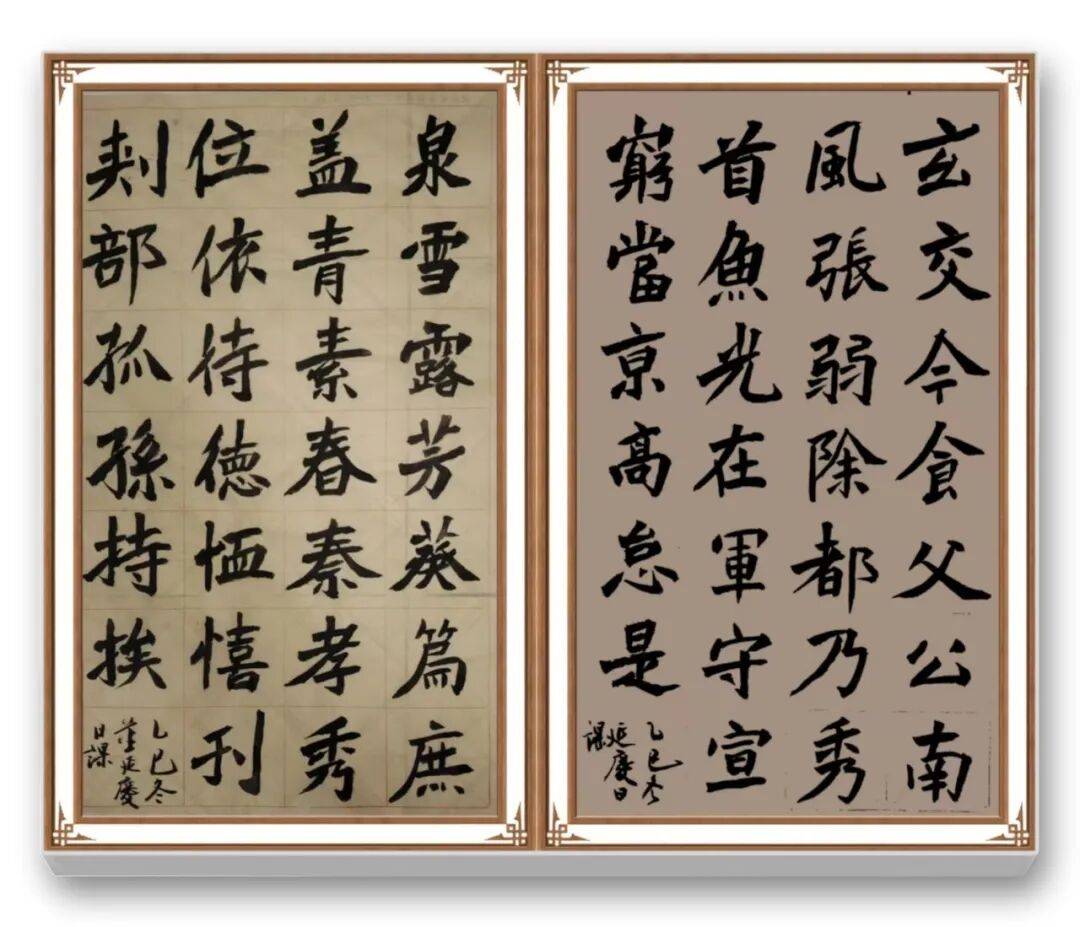 玄交今食父公南
風張弱除都乃秀
首魚光在軍守宣
窮當京高怠是
乙巳冬
延慶日
課
泉雪露芳葵篇庶
盖青素春秦孝秀
位依待德恤禧刊
刾部孤孫持挨
乙巳冬
董延慶
日課